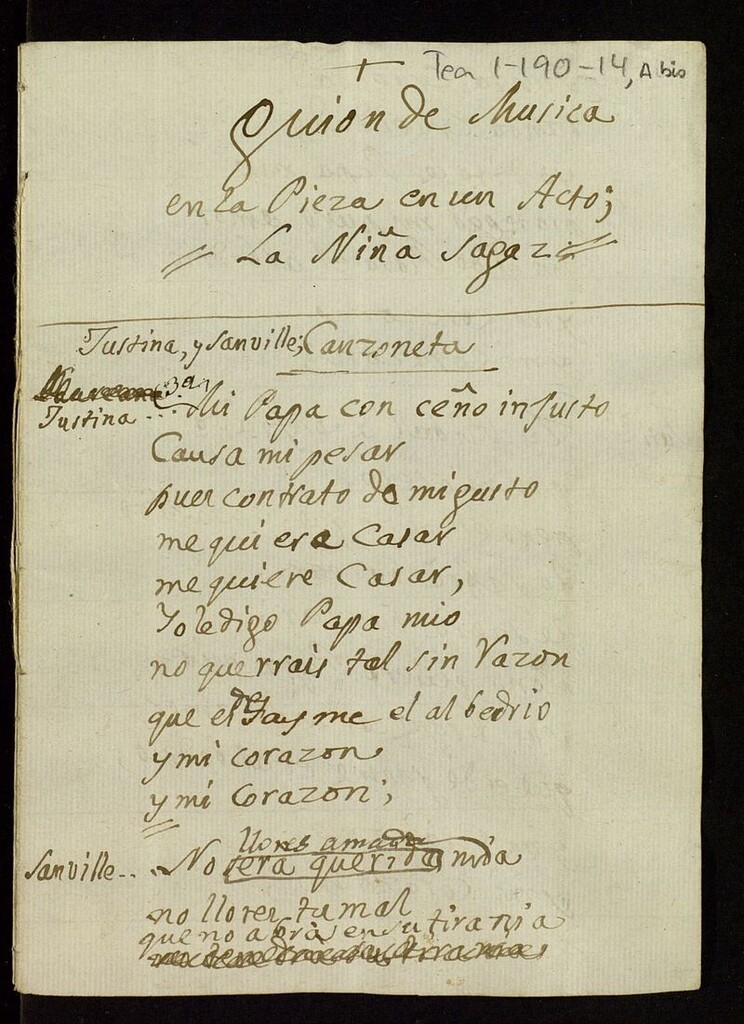 Tea 1-190-14, A bis
+
Guion de Musica
en la Pieza en un Acto;
// La Niña Sagaz //
Justina, y Sanville; Canzoneta
Justina... Mi Papa con ceño injusto
Causa mi pesar
pues contrato de mi gusto
me quiera Casar
me quiere Casar,
Yo le digo Papa mio
no querrais tal sin razon
que es de Jayme el albedrio
y mi corazon
y mi Corazon;
llores amada
Sanville.. No sera querida mia
no llores tu mal
que no abrá en su tirania